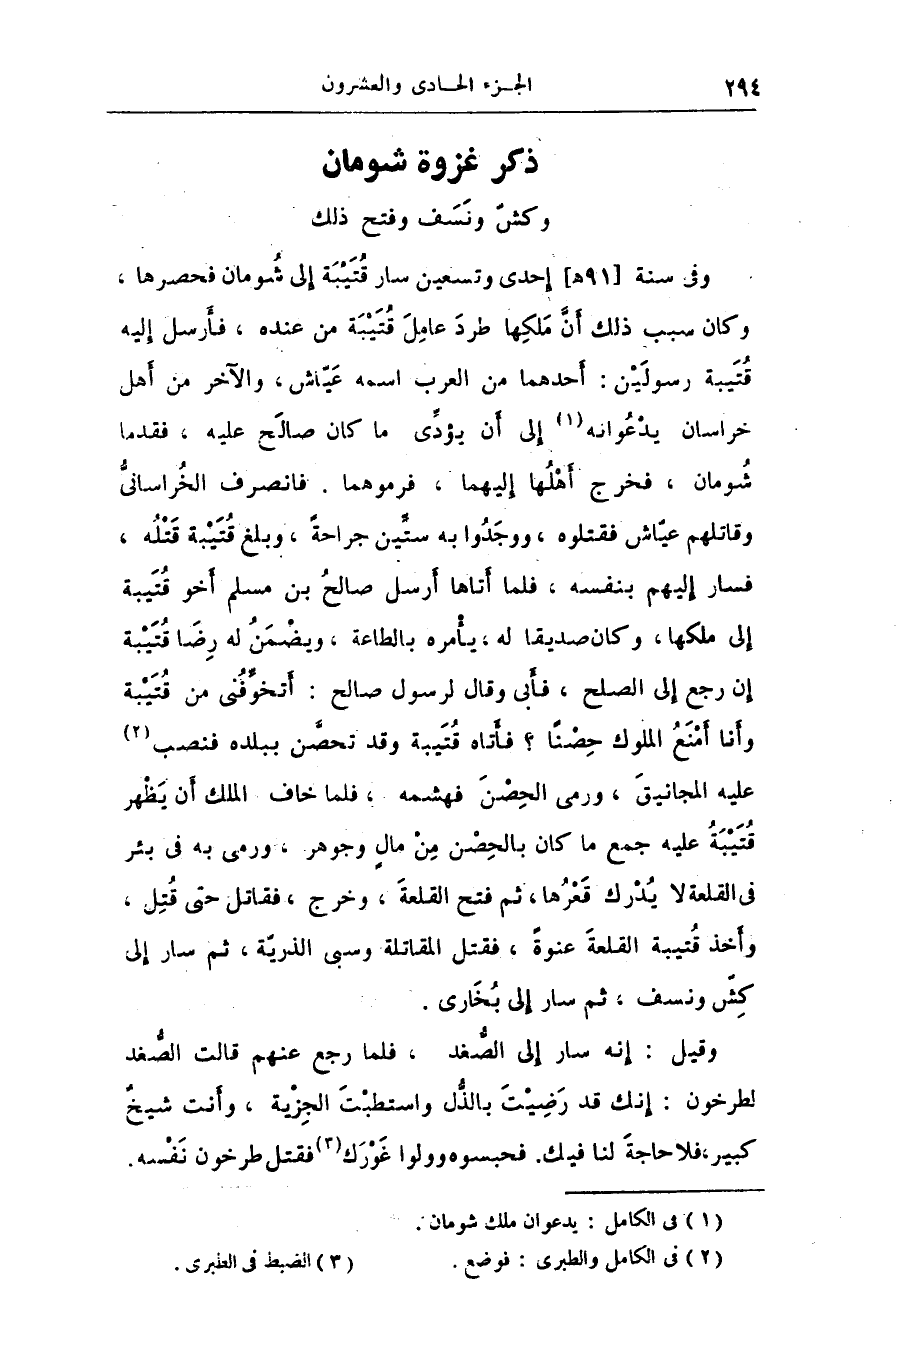 ٢٩٤ الجـزء الحـادى والعشرون
ذكر غزوة شومان
وكشّ ونَسَف وفتح ذلك
وفى سنة [٩١ه] إحدى وتسعين سار قُتَيْبَة إلى شُومان فحصرها ،
وكان سبب ذلك أنَّ مَلكِها طردَ عامِلَ قُتَيْبَة من عنده ، فأرسل إليه
قُتَيبة رسولَيْن : أحدهما من العرب اسمه عَيّاش ، والآخر من أهل
خراسان يدْعُوانه(١) إلى أن يؤدِّى ما كان صالَح عليه ، فقدما
شُومان ، فخرج أَهْلُها إليهما ، فرموهما . فانصرف الخُراسانىُّ
وقاتلهم عيّاش فقتلوه ، ووجَدُوا به ستِّين جراحةً ، وبلغ قُتَيْبة قَتْلُه ،
فسار إليهم بنفسه ، فلما أتاها أرسل صالحُ بن مسلم أخو قُتَيبة
إلى ملكها ، وكان صديقا له ، يأْمره بالطاعة ، ويضْمَنُ له رِضَا قُتَيْبَة
إن رجع إلى الصلح ، فأَبى وقال لرسول صالح : أتخوِّفُنى من قُتَيْبَة
وأنا أَمْنَعُ الملوك حِصْنًا ؟ فأَتاه قُتَيبة وقد تحصَّن ببلده فنصب(٢)
عليه المجانيقَ ، ورمى الحِصْنَ فهشمه ، فلما خاف الملك أن يَظْهر
قُتَيْبَةُ عليه جمع ما كان بالحِصْن مِنْ مالٍ وجوهر ، ورمى به فى بئر
فى القلعة لا يُدْرك قَعْرُها ، ثم فتح القلعةَ ، وخرج ، فقاتل حتى قُتِل ،
وأَخذ قُتيبة القلعةَ عنوةً ، فقتل المقاتلة وسبى الذريّة ، ثم سار إلى
كِشّ ونسف ، ثم سار إلى بُخَارى .
وقيل : إنه سار إلى الصُّغد ، فلما رجع عنهم قالت الصُّغد
لطرخون : إنك قد رَضِيْتَ بالذُّل واستطبْتَ الجِزْية ، وأنت شيخٌ
كبير ، فلا حاجةَ لنا فيك. فحبسوه وولوا غَوْرَك(٣) فقتل طرخون نَفْسه .
(١) فى الكامل : يدعوان ملك شومان .
(٢) فى الكامل والطبرى : فوضع . (٣) الضبط فى الطبرى .